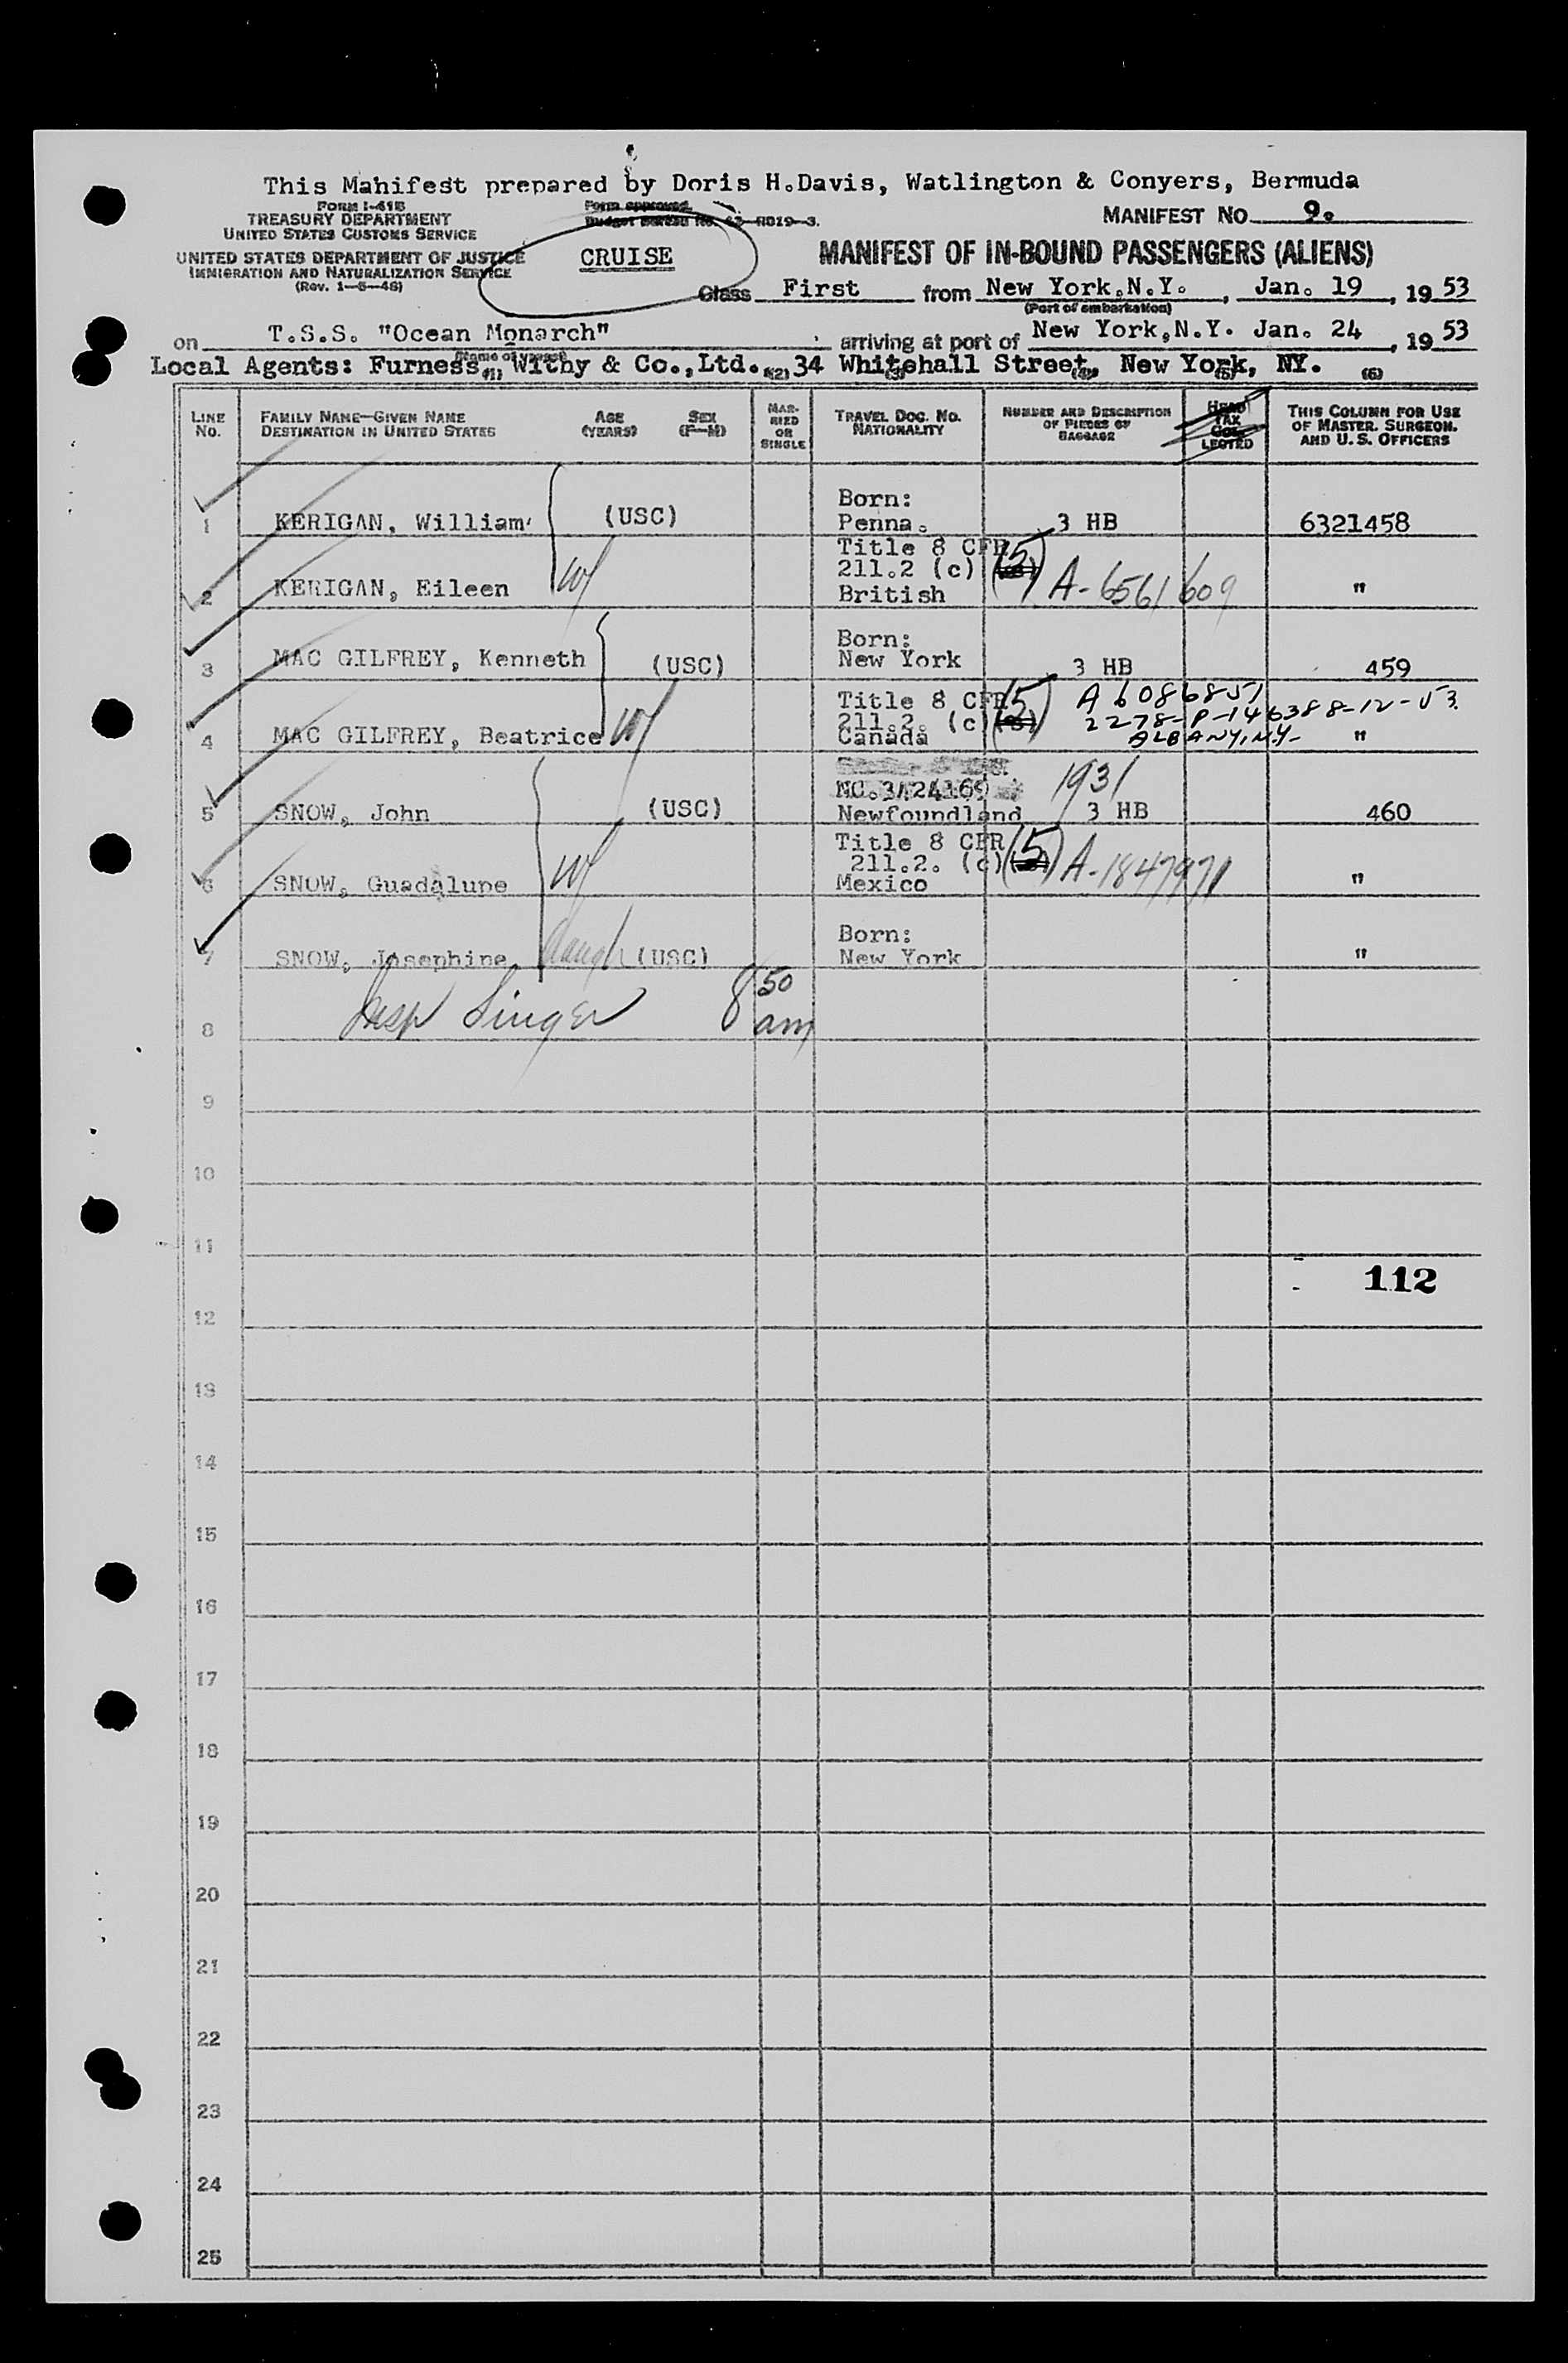 This Mahifest prepared by Doris H.Davis, Watlington & Conyers, Bermuda
FORM I-41B
TREASURY DEPARTMENT
UNITED STATES CUSTOMS SERVICE
UNITED STATES DEPARTMENT OF JUSTICE
IMMIGRATION AND NATURALIZATION SERVICE
(Rev. 1-5-48)
Form approved.
Budget Bureau No. 43-R019-3.
CRUISE
MANIFEST NO. 9.
MANIFEST OF IN-BOUND PASSENGERS (ALIENS)
Class First from New York.N.Y., Jan. 19, 1953
(Port of embarkation)
on T.S.S. "Ocean Monarch" arriving at port of New York,N.Y. Jan. 24, 1953
(Name of vessel)
Local Agents: Furness, Withy & Co.,Ltd., 34 Whitehall Street, New York, NY.
(1) (2) (3) (4) (5) (6)
LINE NO.
FAMILY NAME—GIVEN NAME
DESTINATION IN UNITED STATES
AGE (YEARS)
SEX (F—M)
MARRIED OR SINGLE
TRAVEL DOC. NO.
NATIONALITY
NUMBER AND DESCRIPTION OF PIECES OF BAGGAGE
HEAD TAX COLLECTED
THIS COLUMN FOR USE OF MASTER, SURGEON, AND U. S. OFFICERS
1 KERIGAN, William (USC) Born: Penna. 3 HB 6321458
2 KERIGAN, Eileen wf Title 8 CFR 211.2 (c) (5) British A-6561609 "
3 MAC GILFREY, Kenneth (USC) Born: New York 3 HB 459
4 MAC GILFREY, Beatrice wf Title 8 CFR 211.2. (c) (5) Canada A6086851
2278-P-146388-12-53
ALBANY, N.Y- "
5 SNOW, John (USC) NC.3424169 1931 Newfoundland 3 HB 460
6 SNOW, Guadalupe wf Title 8 CFR 211.2. (c) (5) Mexico A-1847971 "
7 SNOW, Josephine daugh (USC) Born: New York "
8 Insp Singer 8 50 am
9
10
11
112
12
13
14
15
16
17
18
19
20
21
22
23
24
25